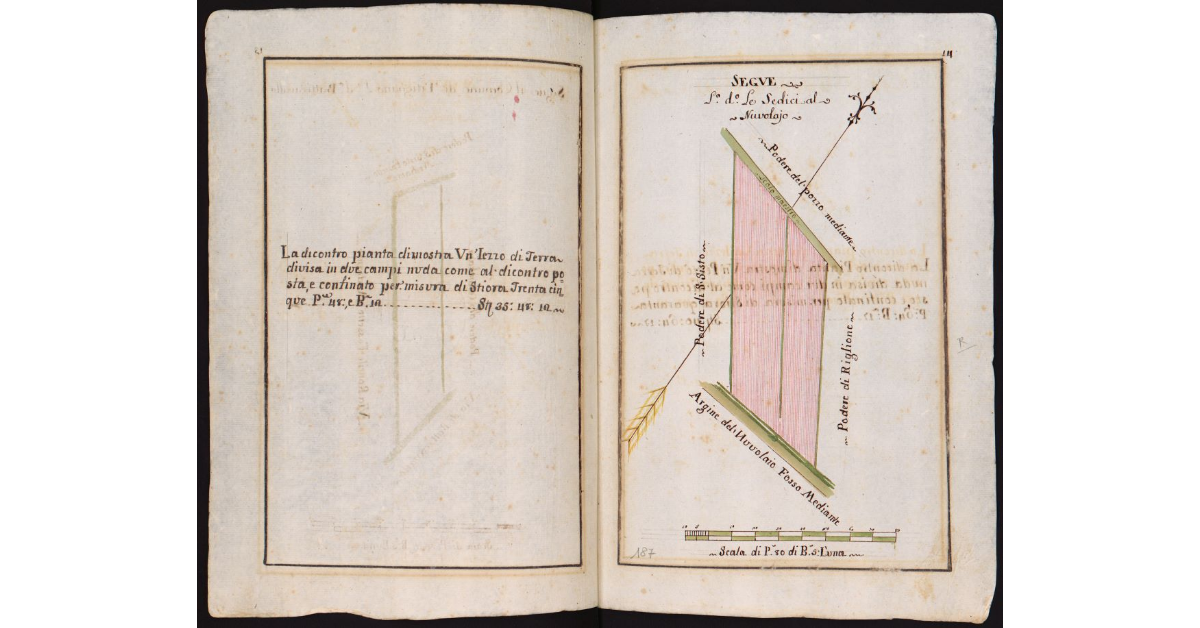 La dicontro pianta dimostra Vn' Pezzo di Terra
divisa in due campi nuda come al dicontro po=
sta, e confinato per misura di Stiora Trenta cin
que P.re 48:, e B.a 12 Sti 35: 48: 12
SEGVE
L.o d.o Le Sedici al
Nuvolajo
Podere del pozzo mediante
Podere di S. Sisto
Podere di Riglione
Argine del Nuvolaio Fosso Mediante
Scala di P.e 80 di B.a 5: l'una
187